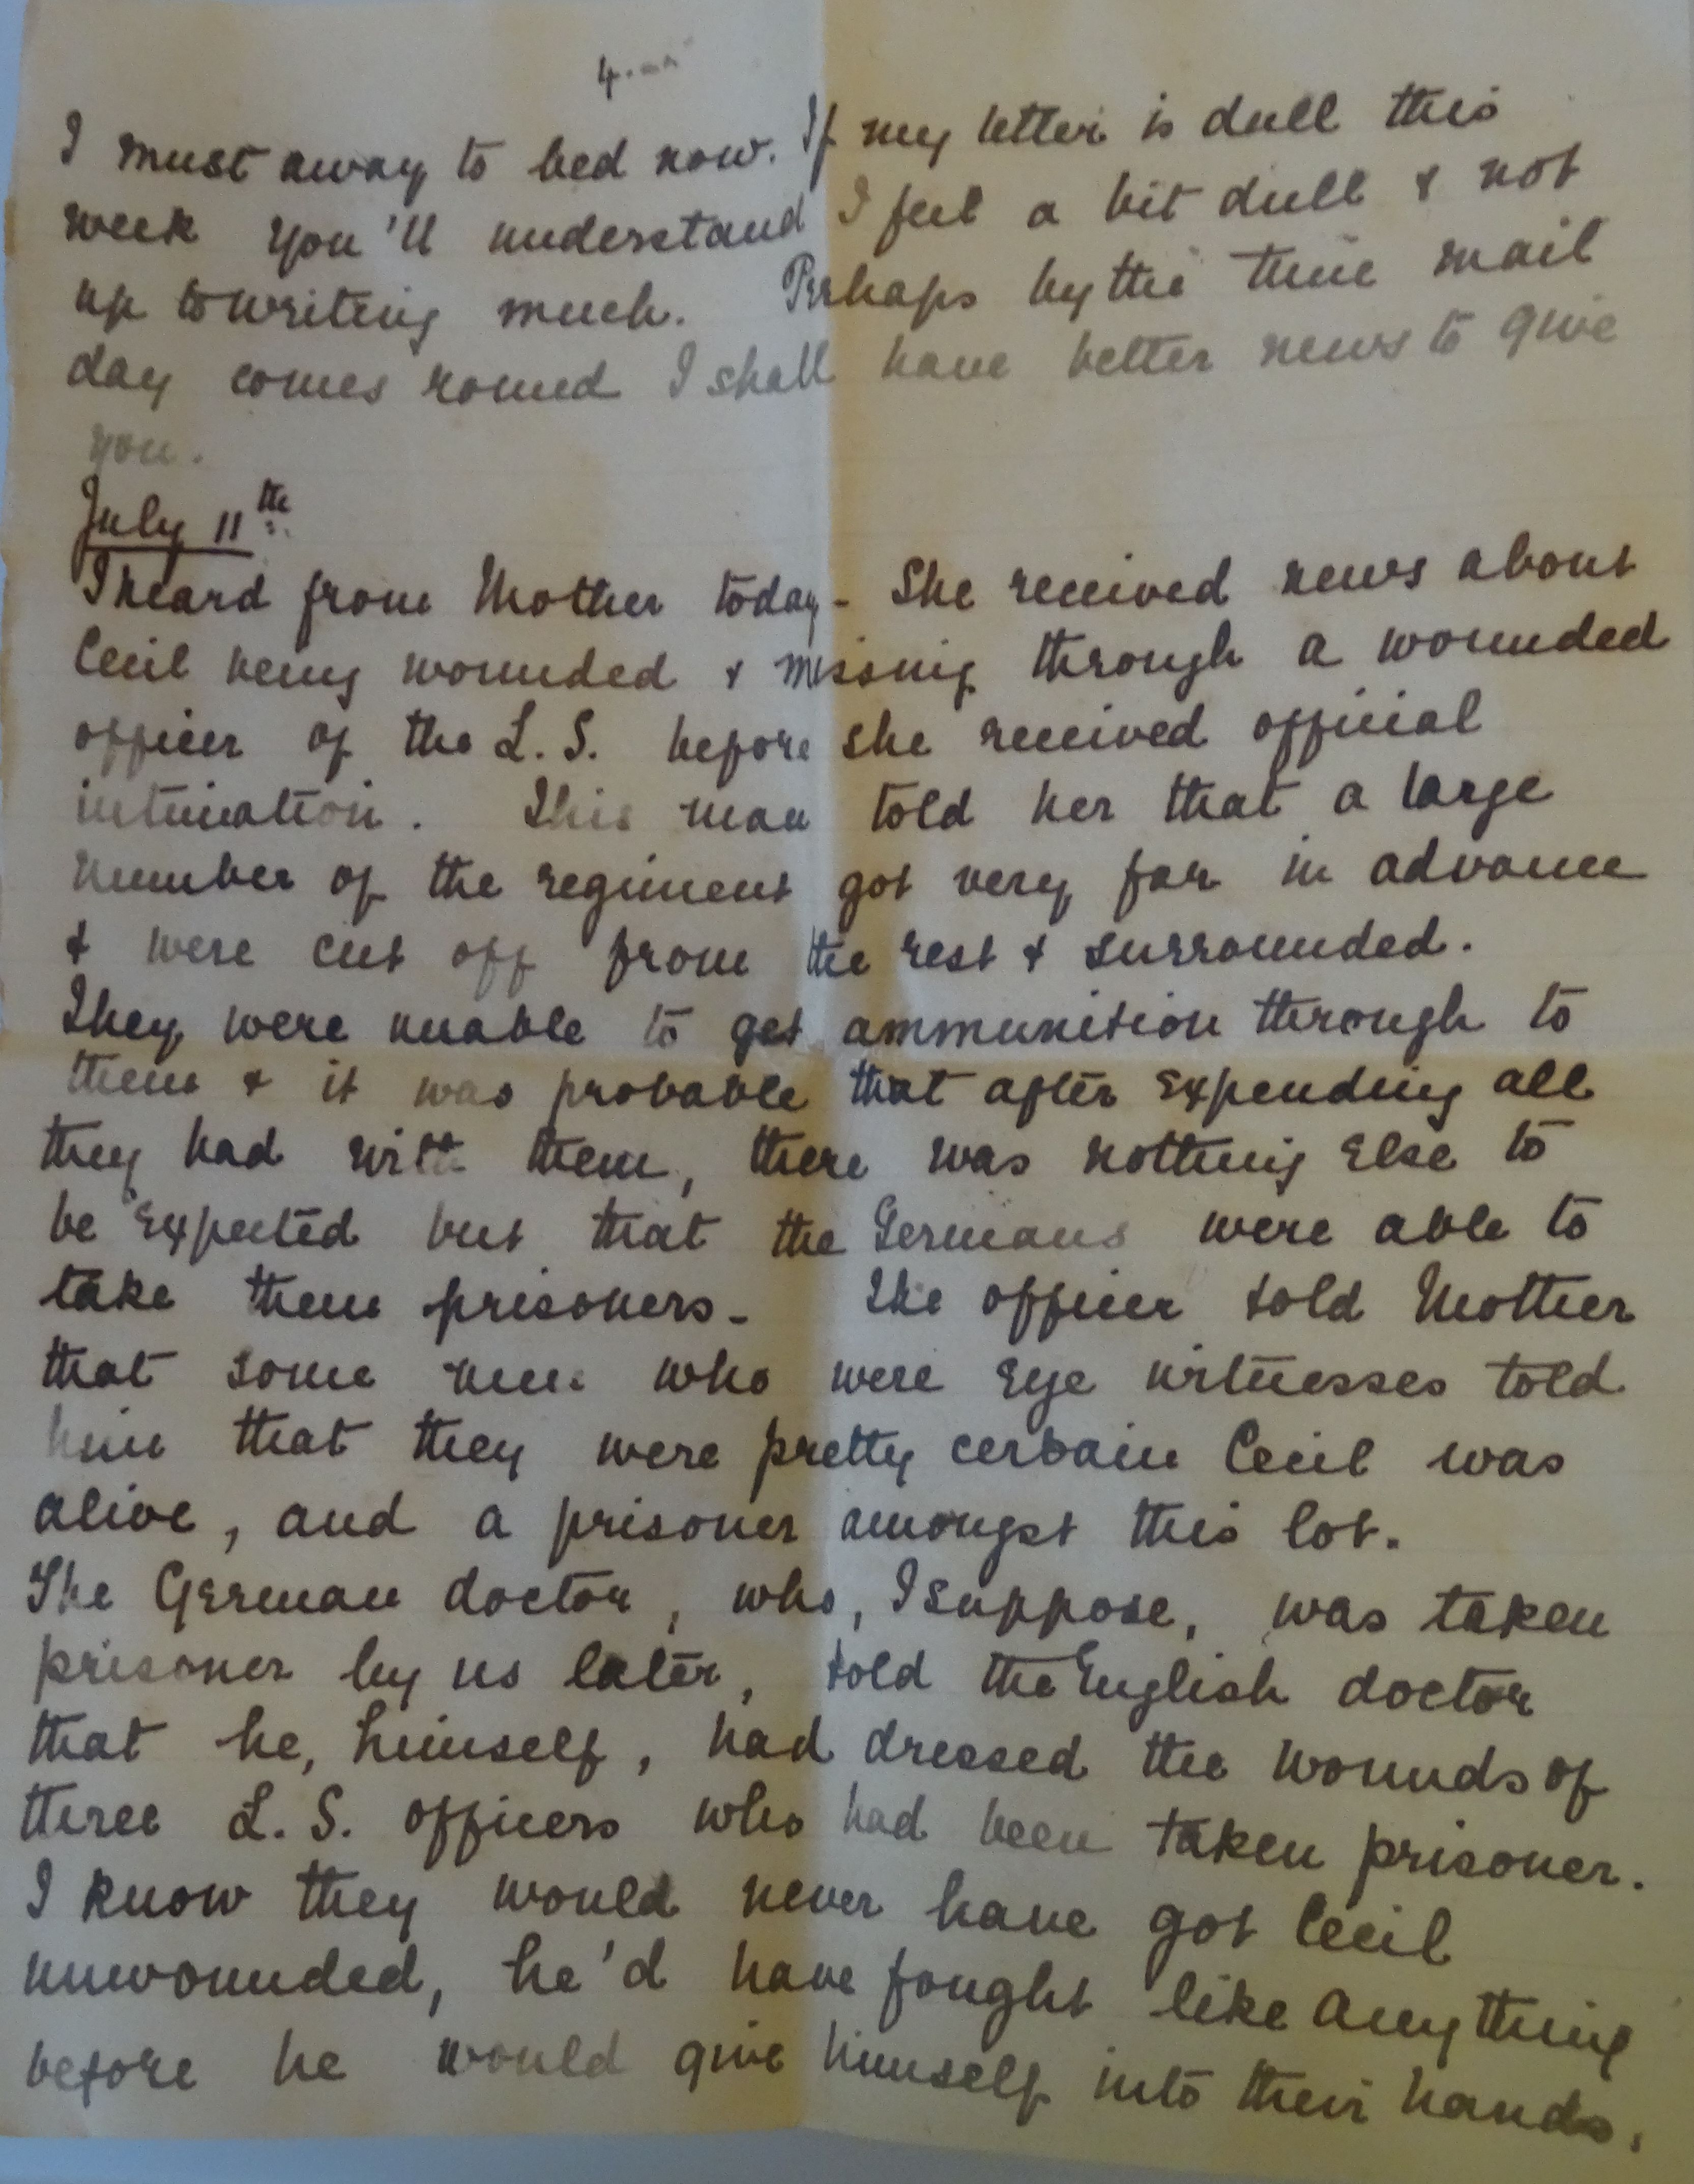 4.
I must away to bed now. If my letter is dull this
week you'll understand I feel a bit dull & not
up to writing much. Perhaps by the time mail
day comes round I shall have better news to give
you.
July 11th
I heard from Mother today - She received news about
Cecil being wounded & missing through a wounded
officer of the L. S. before she received official
intimation. This man told her that a large
number of the regiment got very far in advance
& were cut off from the rest & surrounded.
They were unable to get ammunition through to
them & it was probable that after expending all
they had with them, there was nothing else to
be expected but that the Germans were able to
take them prisoners - The officer told Mother
that some men who were eye witnesses told
him that they were pretty certain Cecil was
alive, and a prisoner amongst this lot.
The German doctor, who, I suppose, was taken
prisoner by us later, told the English doctor
that he, himself, had dressed the wounds of
three L. S. officers who had been taken prisoner.
I know they would never have got Cecil
unwounded, he'd have fought like anything
before he would give himself into their hands.